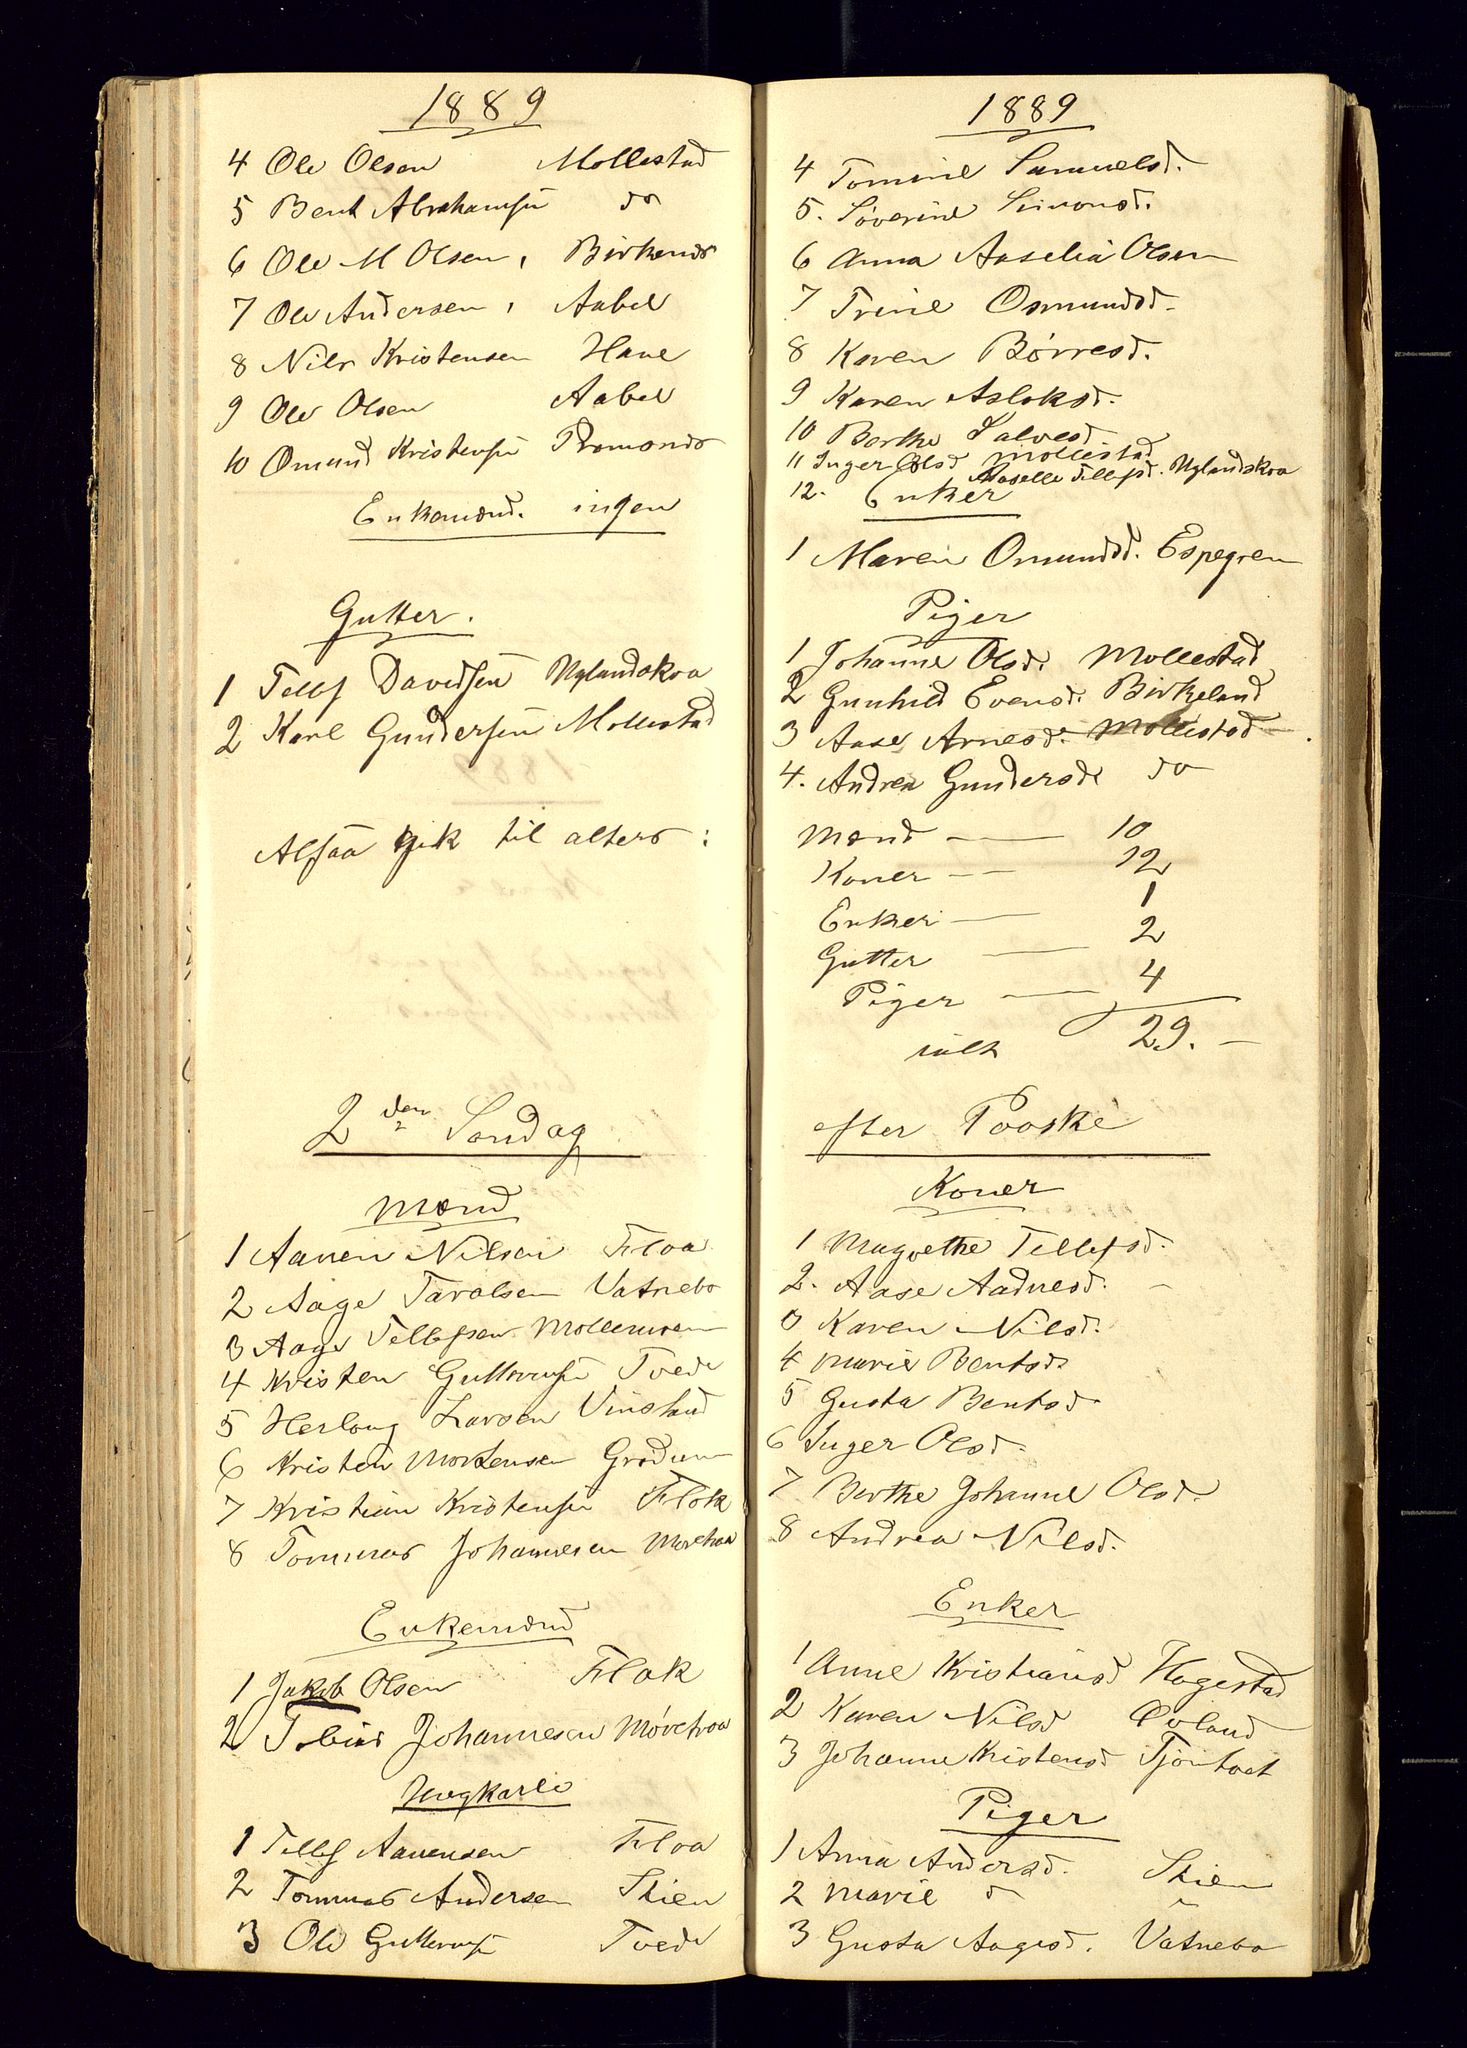 1889
4 Ole Olsen Mollestad
5 Bent Abrahamsen do
6 Ole M Olsen, Birkenes
7 Ole Andersen, Aabel
8 Nils Kristensen Have
9 Ole Olsen Aabel
10 Omund Kristensen
Enkemænd. ingen
Gutter.
1 Tellef Davidsen Uglandskra
2 Karl Gundersen Mollestad
Alfsaa gik til alters :
2den Søndag
Mænd
1 Aanen Nilsen Floa
2 Aage Taralsen Vatnebo
3 Aage Tellefsen Mollemoen
4 Kristen Guttormsen Tvede
5 Herlaug Larsen Vinstad
6 Kristen Mortensen Grødum
7 Kristian Kristensen Flak
8 Tommas Johannesen
Enkemænd
1 Jakob Olsen Flak
2 Tobias Johannesen
Ungkarle
1 Tellef Aanensen Floa
2 Tommas Andersen Skien
3 Ole Guttormsen Tvede
1889
4 Tomine Samuelsd.
5. Søverine Simonsd.
6 Anna Aaselia Olsen
7 Trine Osmundsd.
8 Karen Børresd.
9 Karen Aslaksd.
10 Berthe Salvesd
11 Inger Olsd Mollestad
12. Aaselle Tellefsd. Uglandskra
Enker
1 Maren Omundsd. Espegren
Piger
1 Johanne Olsd. Mollestad
2 Gunhild Evensd. Birkeland
3 Aase Arnesd. Mollestad
4. Andrea Gundersd do
Mænd — 10
Koner — 12
Enker — 1
Gutter — 2
Piger — 4
ialt 29. —
efter Paaske
Koner
1 Magrethe Tellefsd.
2. Aase Aadnesd. —
3 Karen Nilsd.
4 Marie Bentsd
5 Gusta Bentsd
6 Inger Olsd.
7 Berthe Johanne Olsd.
8 Andrea Nilsd.
Enker
1 Anne Kristiansd Hagestad
2 Karen Nilsd
3 Johanne Kristensd
Piger
1 Anna Andersd. Skien
2 Marie d "
3 Gusta Aagesd. Vatnebo